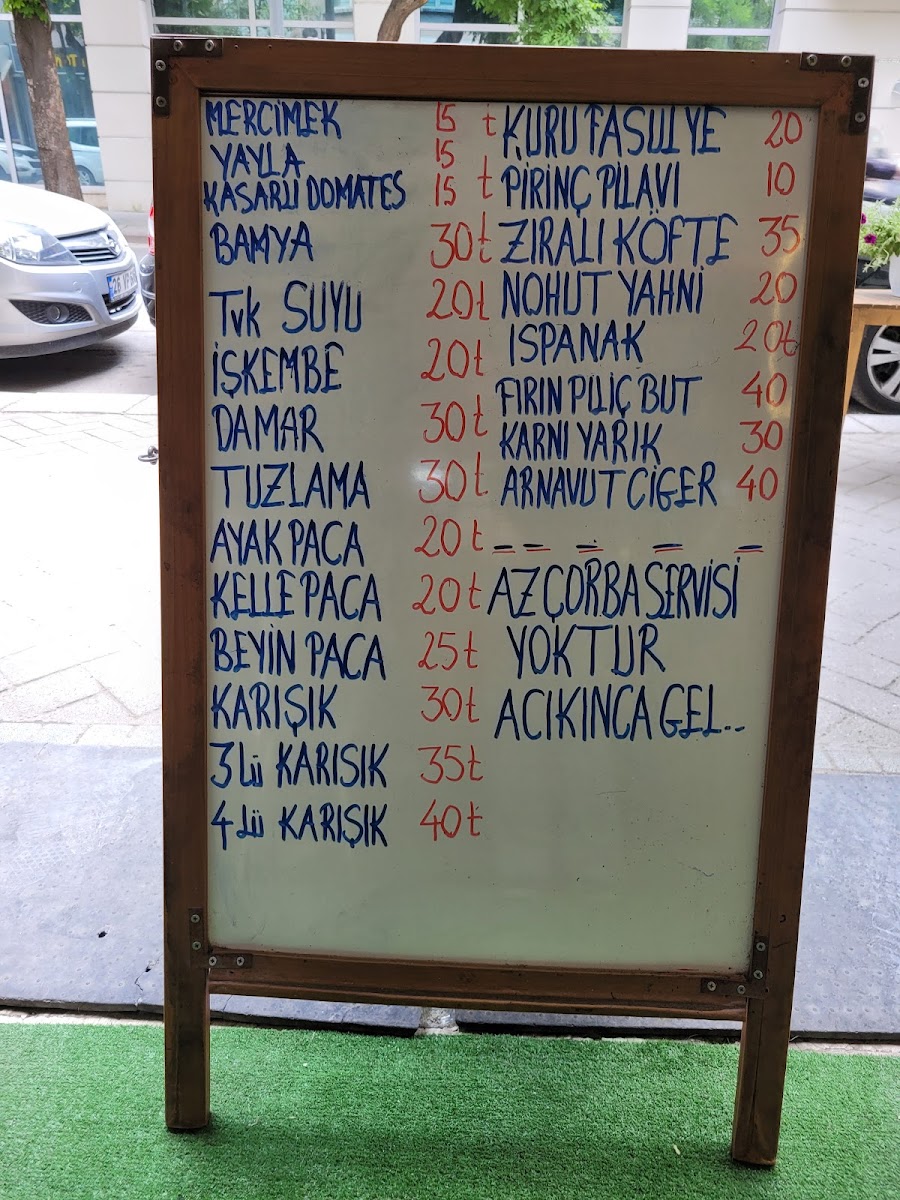 MERCİMEK 15 t
YAYLA 15
KASARLI DOMATES 15 t
BAMYA 30t
Tvk SUYU 20t
İŞKEMBE 20t
DAMAR 30t
TUZLAMA 30t
AYAK PACA 20t
KELLE PACA 20t
BEYİN PACA 25t
KARIŞIK 30t
3 lü KARISIK 35t
4 lü KARIŞIK 40t
KURU FASULYE 20
PİRİNÇ PİLAVI 10
ZIRALI KÖFTE 35
NOHUT YAHNİ 20
ISPANAK 20t
FIRIN PİLİÇ BUT 40
KARNI YARIK 30
ARNAVUT CİGER 40
AZ ÇORBA SERVİSİ
YOKTUR
ACIKINCA GEL..